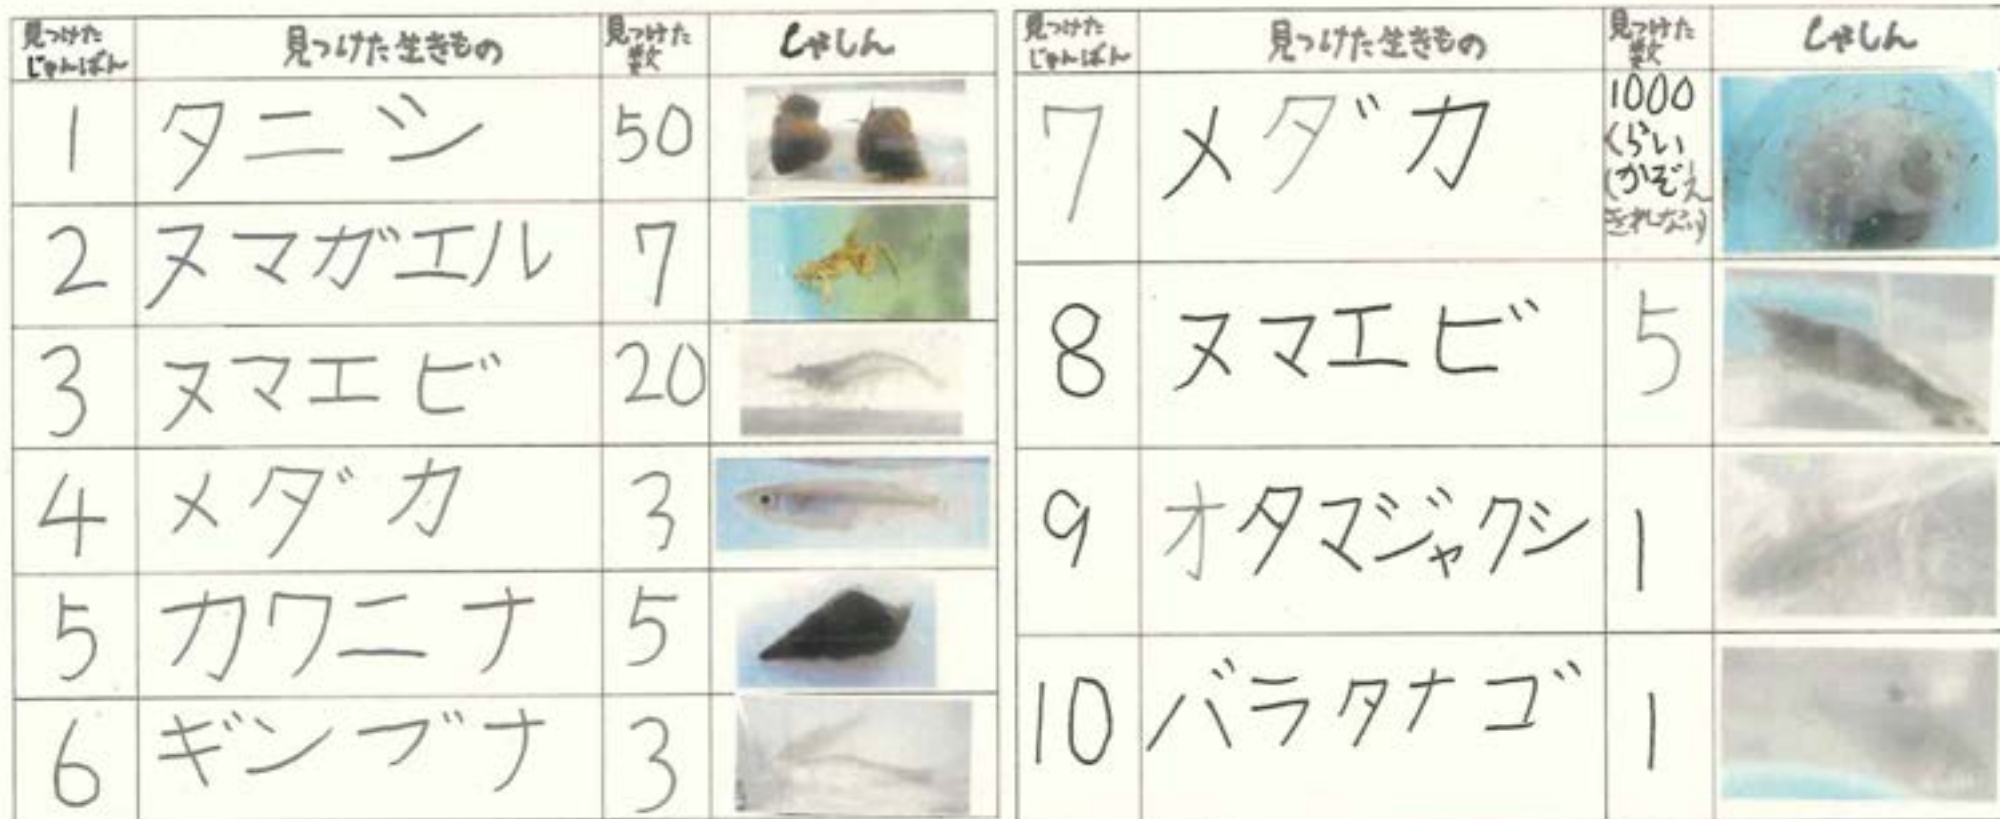 見つけた
じゅんばん
見つけた生きもの
見つけた
数
しゃしん
1
タニシ
50
2
ヌマガエル
7
3
ヌマエビ
20
4
メダカ
3
5
カワニナ
5
6
ギンブナ
3
見つけた
じゅんばん
見つけた生きもの
見つけた
数
しゃしん
7
メダカ
1000
くらい
(かぞえ
きれない)
8
ヌマエビ
5
9
オタマジャクシ
1
10
バラタナゴ
1